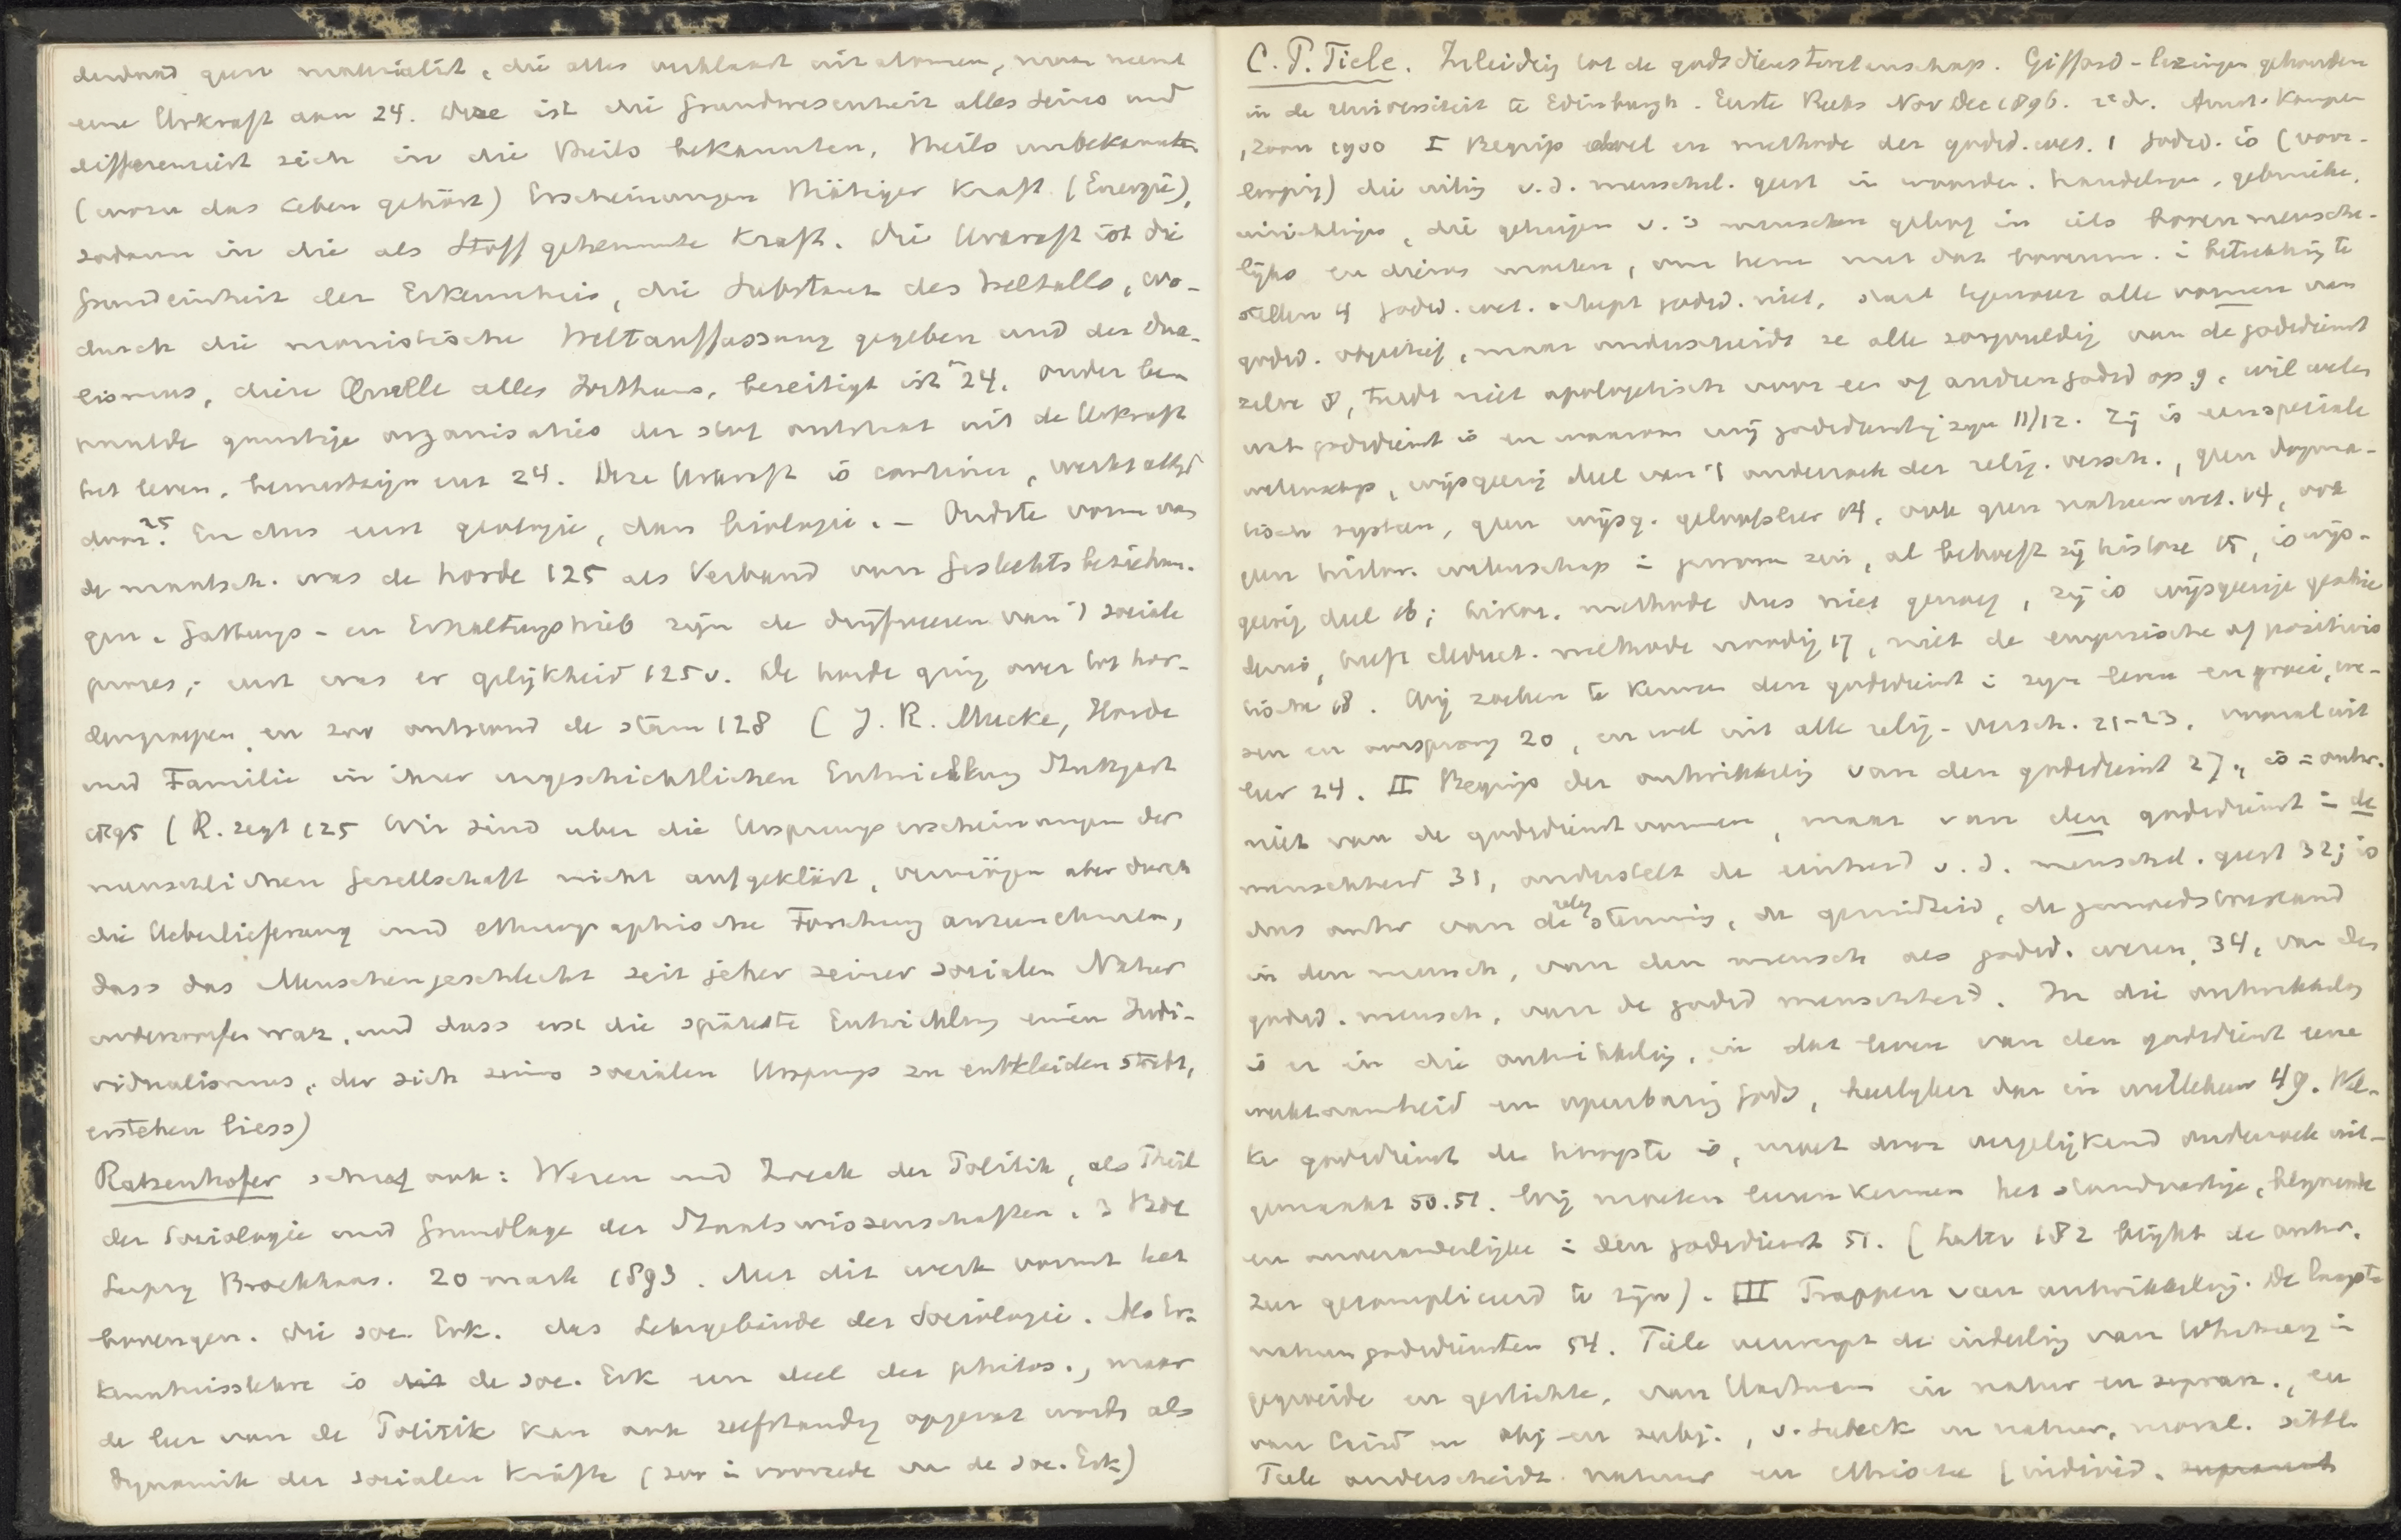 denkend geen materialist, die alles verklaart uit atomen, maar neemt
eine Urkraft aan 24. Diese ist die Grundwesenheit alles Seins und
differenziert sich in die theils bekannten, theils unbekannten
(wozu das Leben gehört) Erscheinungen thätiger Kraft (Energie),
sodann in die als Stoff gehemmte Kraft. Die Urkraft ist die
Grundeinheit der Erkenntnis, die Substanz des Weltalls, wo-
durch die monistische Weltauffassung gegeben und der Dua-
lismus, diese Quelle alles Irrthums, beseitigt ist 24. Onder be-
paalde gunstige organisaties der stof ontstaat uit de Urkraft
het leven, bewustzijn enz 24. Deze Urkraft is continu, werkt altijd
door 25. En dus eerst geologie, dan biologie. – Oudste vorm van
de maatsch. was de horde 125 als Verband van Geslechtsbeziehun-
gen. Gattungs- en Erhaltungstrieb zijn de drijfveeren van 't sociale
proces; eerst was er gelijkheid 125 v. De horde ging over tot hor-
dengruppen en zoo ontstond de stam 128 (J. R. Mucke, Horde
und Familie in ihrer urgeschichtlichen Entwicklung Stuttgart
1895 (R. zegt 125 Wir sind über die Ursprungserscheinungen der
menschlichen Gesellschaft nicht aufgeklärt, vermögen aber durch
die Ueberlieferung und ethnographische Forschung anzunehmen,
dass das Menschengeschlecht seit jeher seiner socialen Natur
unterworfen war, und dass erst die späteste Entwicklung einen Indi-
vidualismus, der sich seines socialen Ursprungs zu entkleiden strebt,
erstehen liess)
Ratzenhofer schreef ook: Wesen und Zweck der Politik, als Theil
der Sociologie und Grundlage der Staatswissenschaften. 3 Bde
Leipzig Brockhaus. 20 mark 1893. Met dit werk vormt het
bovengen. Die soc. Erk. das Lehrgebäude der Sociologie. Als Er-
kenntnisslehre is de soc. Erk een deel der philos., maar
de leer van de Politik kan ook zelfstandig opgevat worden als
Dynamik der socialen Kräfte (zoo in voorrede van de soc. Erk)
C. P. Tiele. Inleiding tot de godsdienstwetenschap. Gifford-lezingen gehouden
in de Universiteit te Edinburgh. Eerste Reeks Nov Dec 1896. 2e dr. Amst. Kampen
, Zoon 1900 I Begrip doel en methode der godsd. wet. 1 Godsd. is (voor-
loopig) die uiting v. d. menschel. geest in woorden, handelingen, gebruiken,
inrichtingen, die getuigen v. 's menschen geloof in iets bovenmensche-
lijks en dienen moeten, om hem met dat bovenm. in betrekking te
stellen 4 Godsd. wet. schept godsd. niet, staat tegenover alle vormen van
godsd. objectief, maar onderscheidt ze alle zorgvuldig van de godsdienst
zelve 8, treedt niet apologetisch voor een of anderen godsd op 9, wil weten
wat godsdienst is en waarom wij godsdienstig zijn 11/12. Zij is een speciale
wetenschap, wijsgeerig deel van 't onderzoek der relig. versch., geen dogma-
tisch systeem, geen wijsg. geloofsleer 14, ook geen natuurwet. 14, ook
geen histor. wetenschap in gewonen zin, al behoeft zij historie 15, is wijs-
geerig deel 16; histor. methode dus niet genoeg, zij is wijsgeerige geschie-
denis, heeft deduct. methode noodig 17, niet de empirische of positivis-
tische 18. Wij zoeken te kennen den godsdienst in zijn leven en groei, we-
zen en oorsprong 20, en wel uit alle relig. versch. 21-23, vooral uit
leer 24. II Begrip der ontwikkeling van den godsdienst 27, is = ontw.
niet van de godsdienstvormen, maar van den godsdienst in de
menschheid 31, onderstelt de eenheid v. d. menschel. geest 32; is
dus ontw van de relig stemming, de gezindheid, de gemoedstoestand
in den mensch, van den mensch als godsd. wezen 34, van den
godsd. mensch, van de godsd menschheid. In die ontwikkeling
is er in die ontwikkeling, in dat leven van den godsdienst eene
werkzaamheid en openbaring Gods, heerlijker dan in 49. Wel-
ke godsdienst de hoogste is, moet door vergelijkend onderzoek uit-
gemaakt 50.51. Wij moeten leeren kennen het standvastige, blijvende
en onveranderlijke in den godsdienst 51. (Later 182 blijkt de ontw.
zeer gecompliceerd te zijn). III Trappen van ontwikkeling. De laagste
natuurgodsdiensten 54. Tiele verwerpt de indeeling van Whitney in
gegroeide en gestichte, van Hartmann in natur en supran., en
van Caird in obj- en subj., v. Siebeck in natuur, moral.
Tiele onderscheidt natuur en ethische (individ.